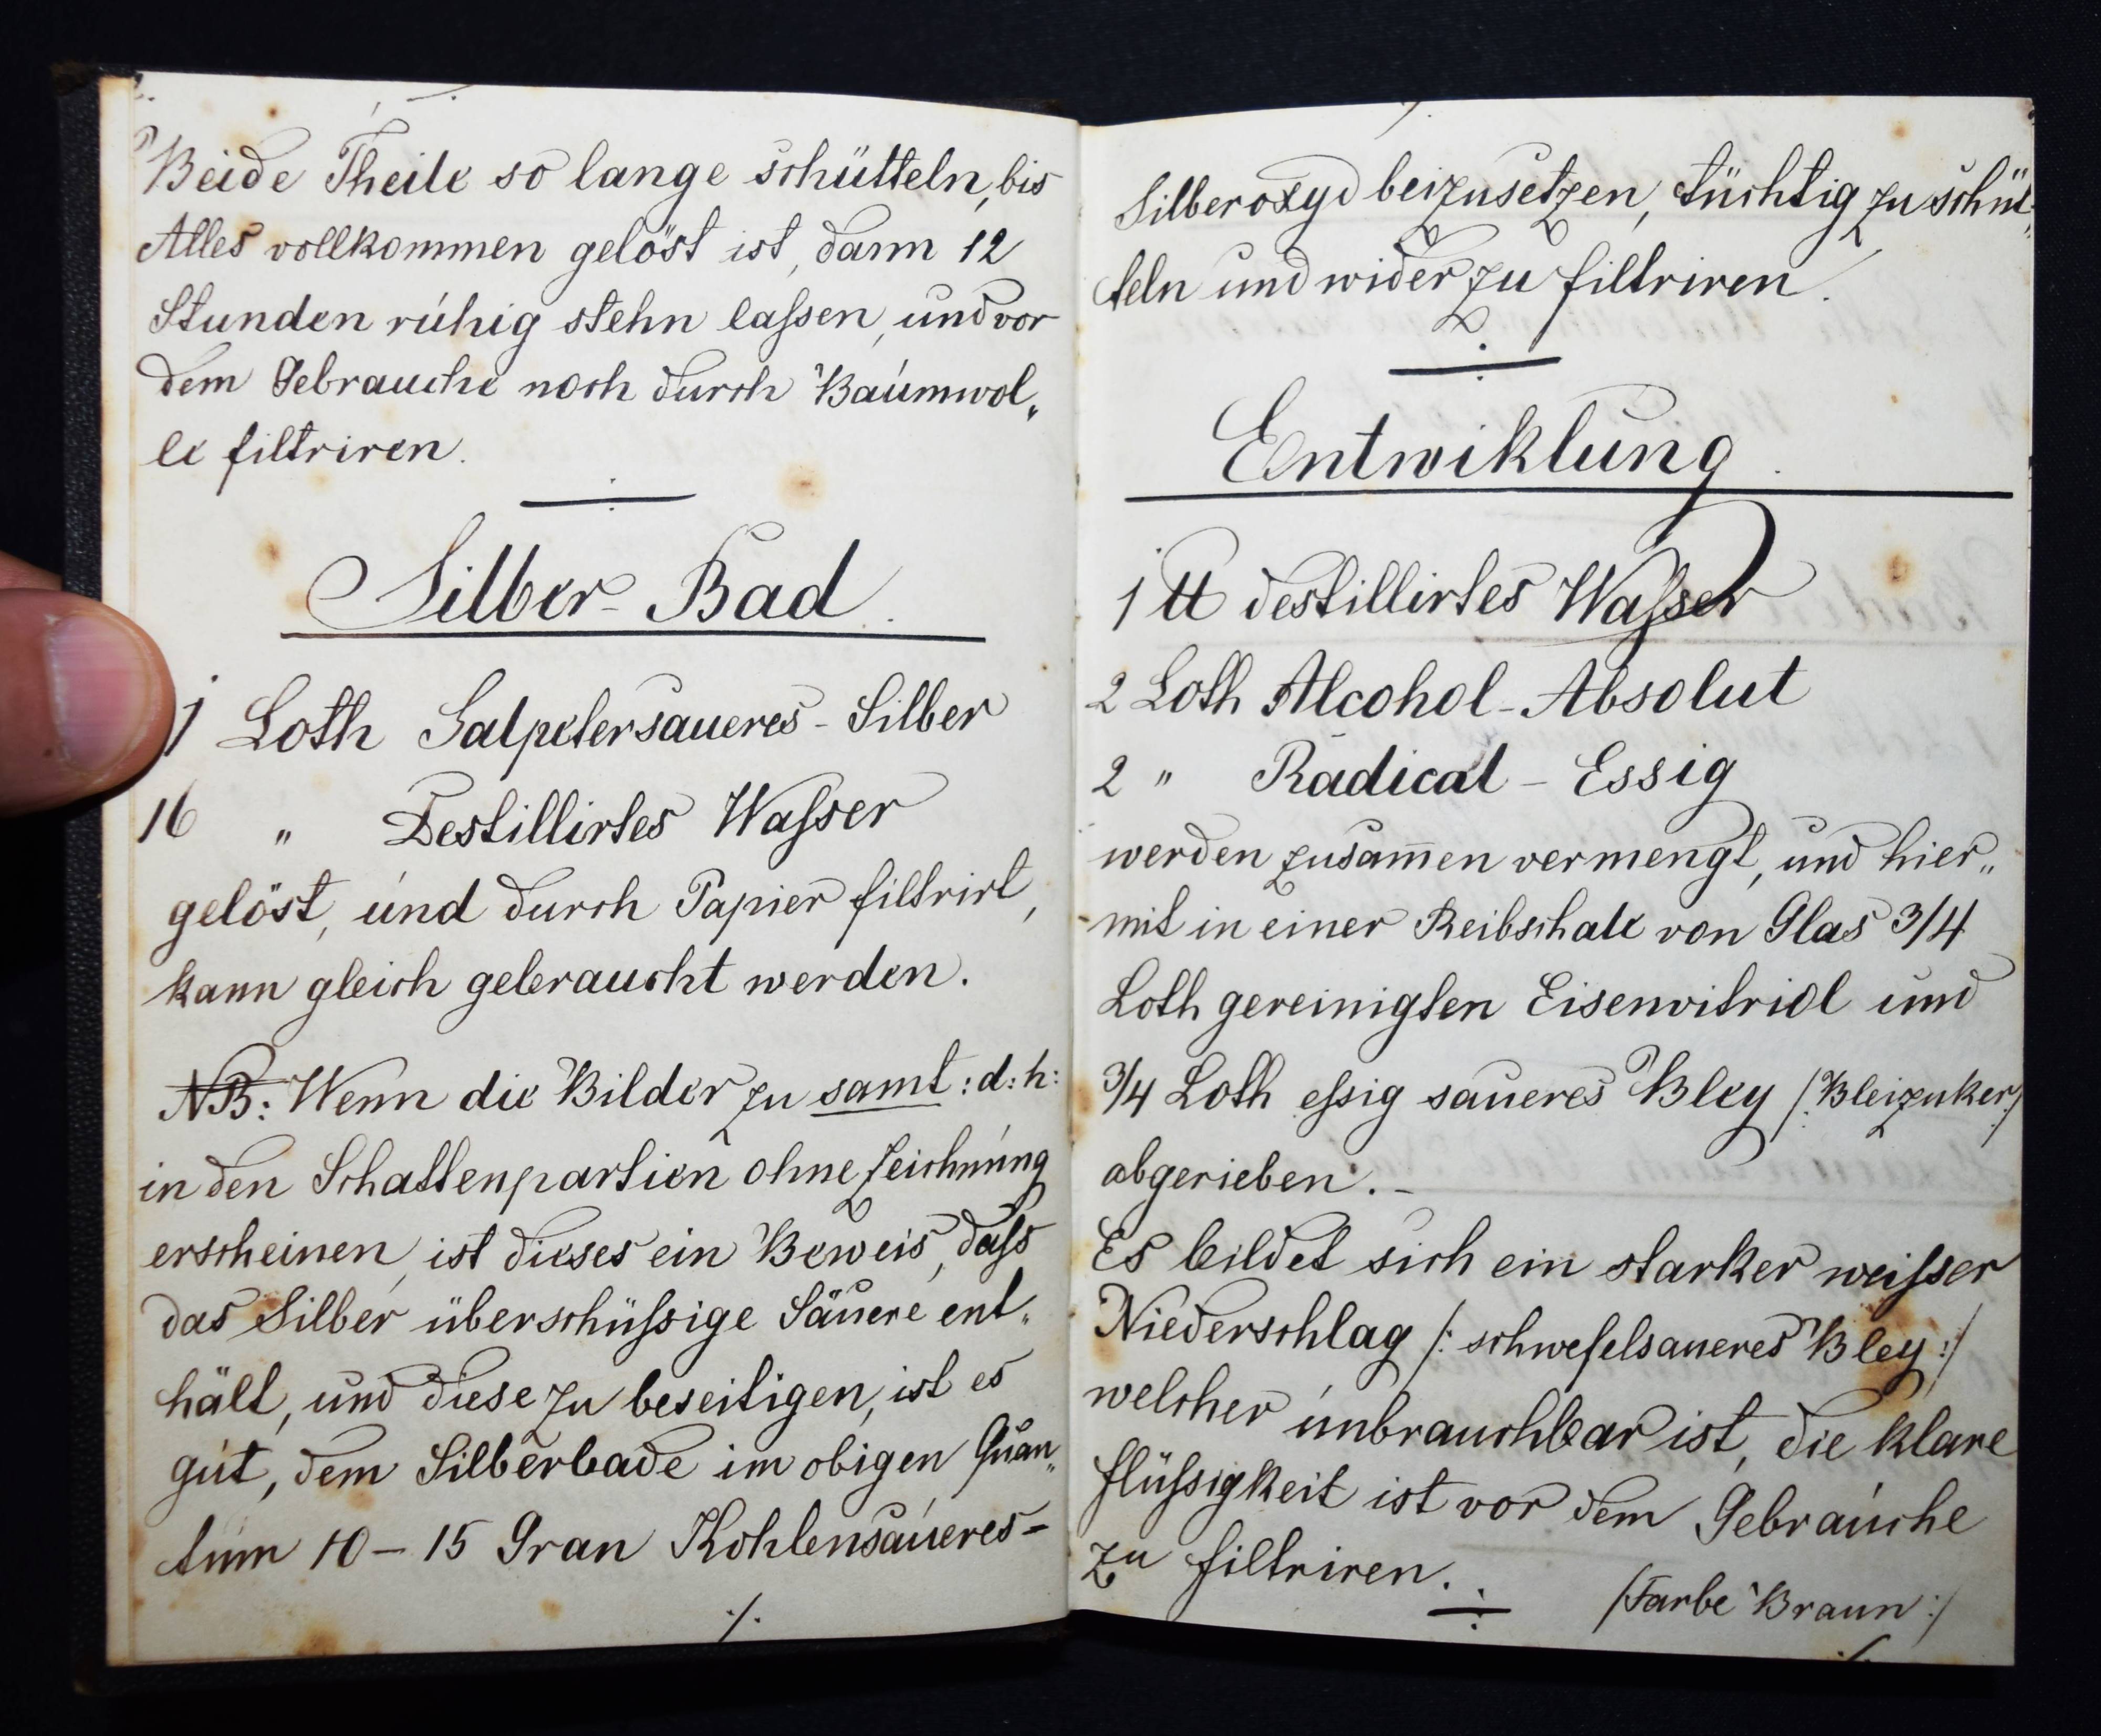 Beide Theile so lange schütteln, bis
Alles vollkommen gelöst ist, dann 12
Stunden ruhig stehn laſsen, und vor
dem Gebrauche noch durch Baumwol„
le filtriren.
Silber-Bad.
1 Loth Salpetersaueres-Silber
16 „ Destillirtes Waſser
gelöst, und durch Papier filtrirt,
kann gleich gebraucht werden.
NB: Wenn die Bilder zu samt: d: h:
in den Schattenpartien ohne Zeichnung
erscheinen, ist dieses ein Beweis, daſs
das Silber überschüſsige Säuere ent„
hält, und diese zu beseitigen, ist es
gut, dem Silberbade im obigen Quan„
tum 10-15 Gran Kohlensaueres-
./.
Silberoxyd beizusetzen, tüchtig zu schüt„
teln und wider zu filtriren.
Entwiklung.
1 ℔ destillirtes Waſser
2 Loth Alcohol-Absolut
2 „ Radical-Essig
werden zusam̄en vermengt, und hier„
mit in einer Reibschale von Glas 3/4
Loth gereinigten Eisenvitriol und
3/4 Loth eſsig saueres Bley /:Bleizuker:/
abgerieben.-
Es bildet sich ein starker weiſser
Niederschlag /: schwefelsaueres Bley:/
welcher unbrauchbar ist, die klare
flüſsigkeit ist vor dem Gebrauche
zu filtriren.
/Farbe Braun:/
./.